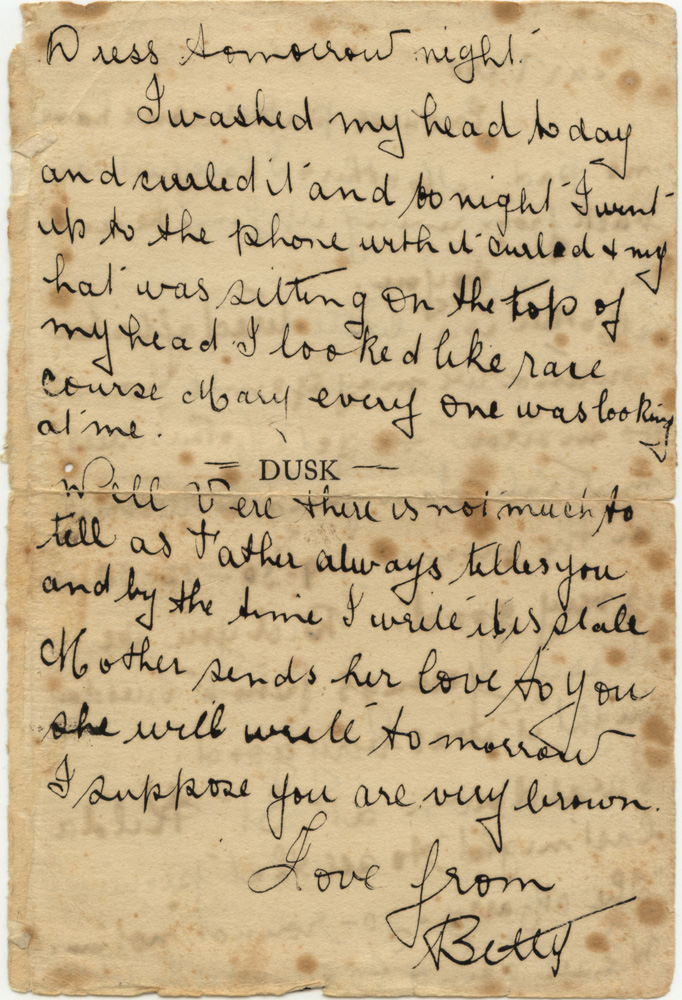 Dress tomorrow night.
I washed my head today
and curled it and to night I went
up to the phone with it curled & my
hat was sitting on the top of
my head I looked like race
course Mary every one was looking
at me.
= DUSK —
Well Vere there is not much to
tell as Father always telles you
and by the time I write it is stale
Mother sends her love to you
she will write to morrow
I suppose you are very brown.
Love from
Betty